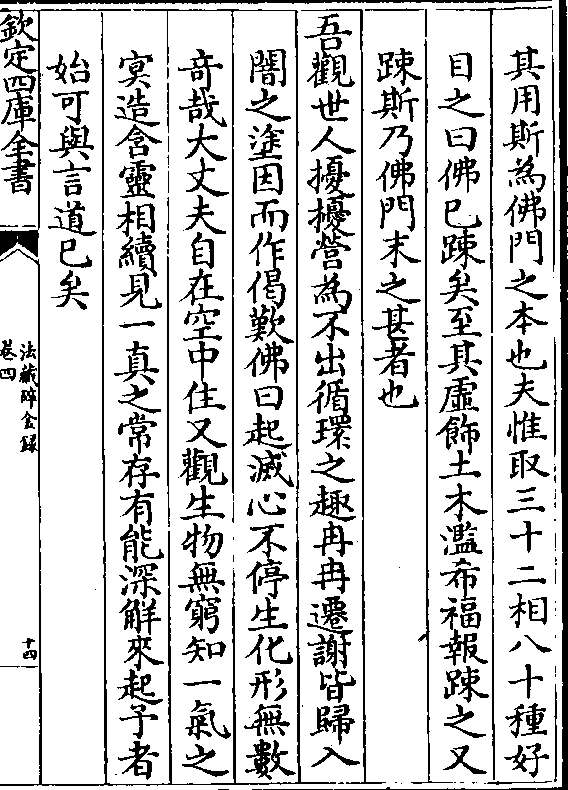 其用斯為佛門之本也夫惟取三十二相八十種好
目之曰佛已踈矣至其虛飾土木濫希福報踈之又
踈斯乃佛門末之甚者也
吾觀世人擾擾營為不出循環之趣冉冉遷謝皆歸入
闇之塗因而作偈歎佛曰起滅心不停生化形無數
竒哉大丈夫自在空中住又觀生物無窮知一氣之
㝠造含靈相續見一真之常存有能深解來起予者
始可與言道已矣
欽定四庫全書
法藏碎金録
卷四
十四